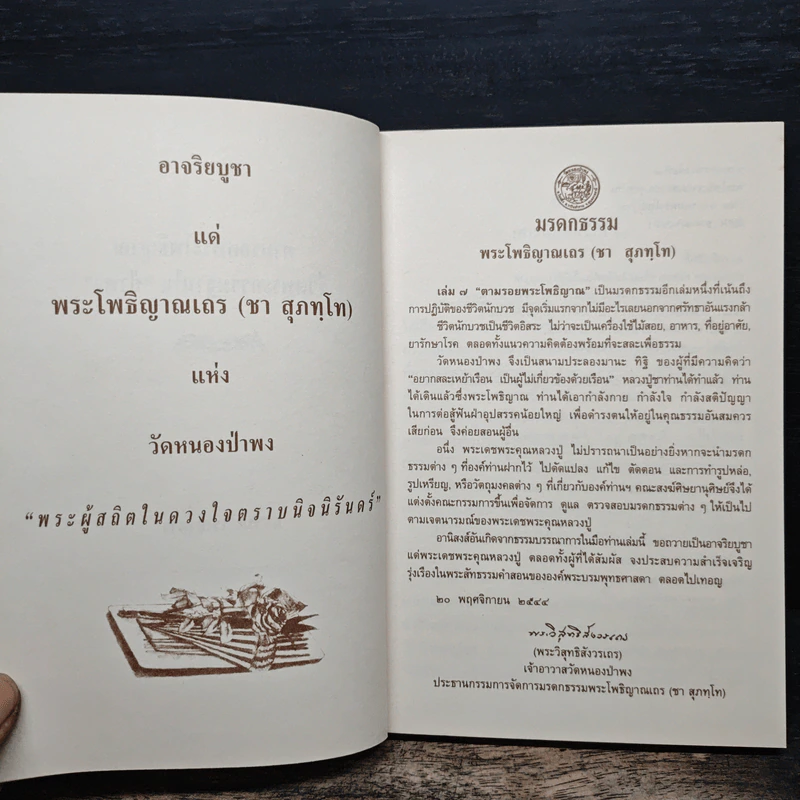 อาจริยบูชา
แด่
พระโพธิญาณเถร (ชา สุภทฺโท)
แห่ง
วัดหนองป่าพง
“พระผู้สถิตในดวงใจตราบนิจนิรันดร์”
มรดกธรรม
พระโพธิญาณเถร (ชา สุภทฺโท)
เล่ม ๗ “ตามรอยพระโพธิญาณ” เป็นมรดกธรรมอีกเล่มหนึ่งที่เน้นถึง
การปฏิบัติของชีวิตนักบวช มีจุดเริ่มแรกจากไม่มีอะไรเลยนอกจากศรัทธาอันแรงกล้า
ชีวิตนักบวชเป็นชีวิตอิสระ ไม่ว่าจะเป็นเครื่องใช้ไม้สอย, อาหาร, ที่อยู่อาศัย,
ยารักษาโรค ตลอดทั้งแนวความคิดต้องพร้อมที่จะสละเพื่อธรรม
วัดหนองป่าพง จึงเป็นสนามประลองมานะ ทิฐิ ของผู้ที่มีความคิดว่า
“อยากสละเหย้าเรือน เป็นผู้ไม่เกี่ยวข้องด้วยเรือน” หลวงปู่ชาท่านได้ทำแล้ว ท่าน
ได้เดินแล้วซึ่งพระโพธิญาณ ท่านได้เอากำลังกาย กำลังใจ กำลังสติปัญญา
ในการต่อสู้ฟันฝ่าอุปสรรคน้อยใหญ่ เพื่อดำรงตนให้อยู่ในคุณธรรมอันสมควร
เสียก่อน จึงค่อยสอนผู้อื่น
อนึ่ง พระเดชพระคุณหลวงปู่ ไม่ปรารถนาเป็นอย่างยิ่งหากจะนำมรดก
ธรรมต่าง ๆ ที่องค์ท่านฝากไว้ ไปดัดแปลง แก้ไข ตัดตอน และการทำรูปหล่อ,
รูปเหรียญ, หรือวัตถุมงคลต่าง ๆ ที่เกี่ยวกับองค์ท่านฯ คณะสงฆ์ศิษยานุศิษย์จึงได้
แต่งตั้งคณะกรรมการขึ้นเพื่อจัดการ ดูแล ตรวจสอบมรดกธรรมต่าง ๆ ให้เป็นไป
ตามเจตนารมณ์ของพระเดชพระคุณหลวงปู่
อานิสงส์อันเกิดจากธรรมบรรณาการในมือท่านเล่มนี้ ขอถวายเป็นอาจริยบูชา
แด่พระเดชพระคุณหลวงปู่ ตลอดทั้งผู้ที่ได้สัมผัส จงประสบความสำเร็จเจริญ
รุ่งเรืองในพระสัทธรรมคำสอนขององค์พระบรมพุทธศาสดา ตลอดไปเทอญ
๒๐ พฤศจิกายน ๒๕๔๔
พระวิสุทธิสังวรเถร
(พระวิสุทธิสังวรเถร)
เจ้าอาวาสวัดหนองป่าพง
ประธานกรรมการจัดการมรดกธรรมพระโพธิญาณเถร (ชา สุภทฺโท)